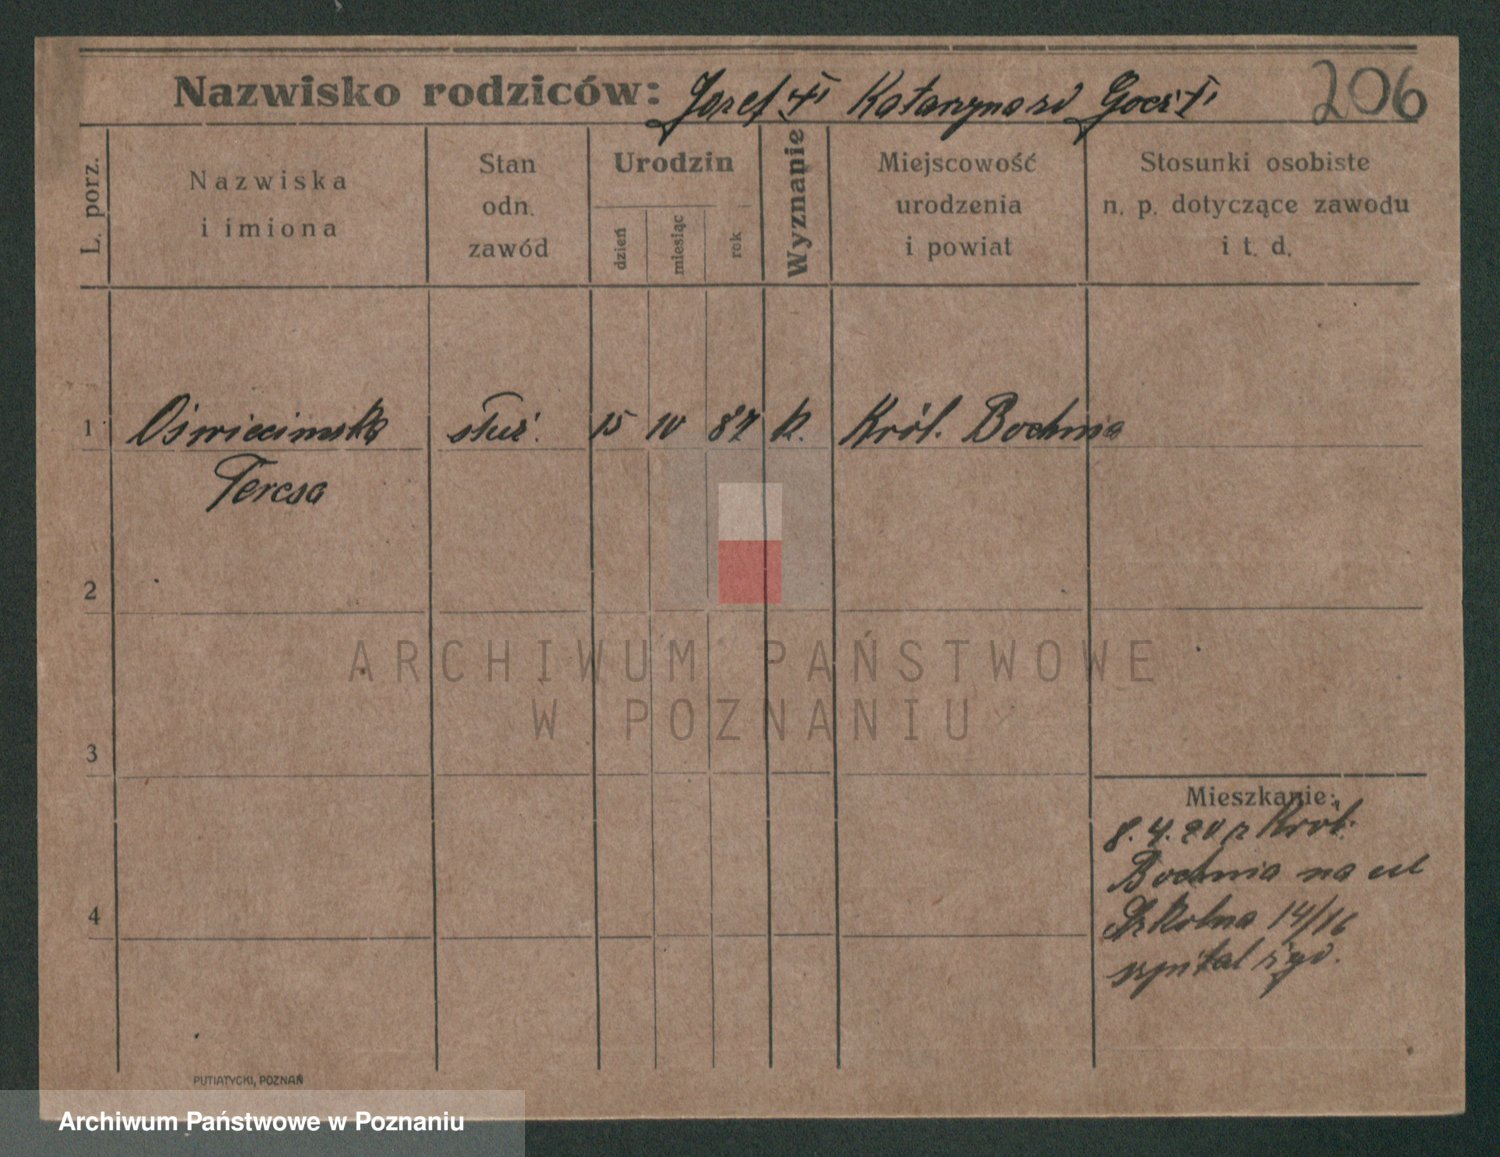 Nazwisko rodziców: Józef Katarzyna zd 206
L. porz.
Nazwiska
i imiona
Stan
odn.
zawód
Urodzin
dzień
miesiąc
rok
Wyznanie
Miejscowość
urodzenia
i powiat
Stosunki osobiste
n. p. dotyczące zawodu
i t. d.
1 Oświecimska służ. 15 10 87 k. Król. Bochnia
Teresa
2
ARCHIWUM PAŃSTWOWE
W POZNANIU
3
Mieszkanie:
8. 4. 20 z Król.
Bochnia na ul
Szkolna 14/16
szpital żyd.
4
PUTIATYCKI, POZNAŃ
Archiwum Państwowe w Poznaniu